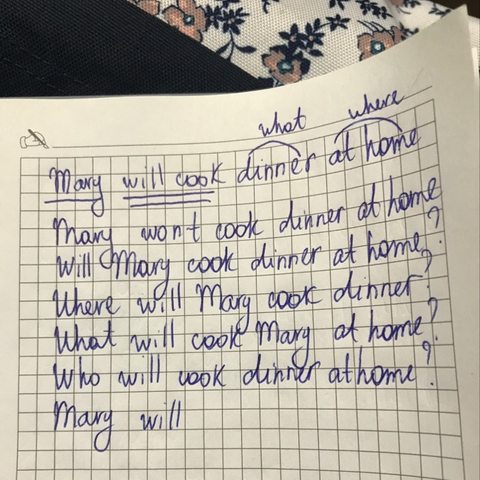 what where
Mary will cook dinner at home
Mary wont cook dinner at home
Will Mary cook dinner at home?
Where will Mary cook dinner?
What will cook Mary at home?
Who will cook dinner at home?
Mary will